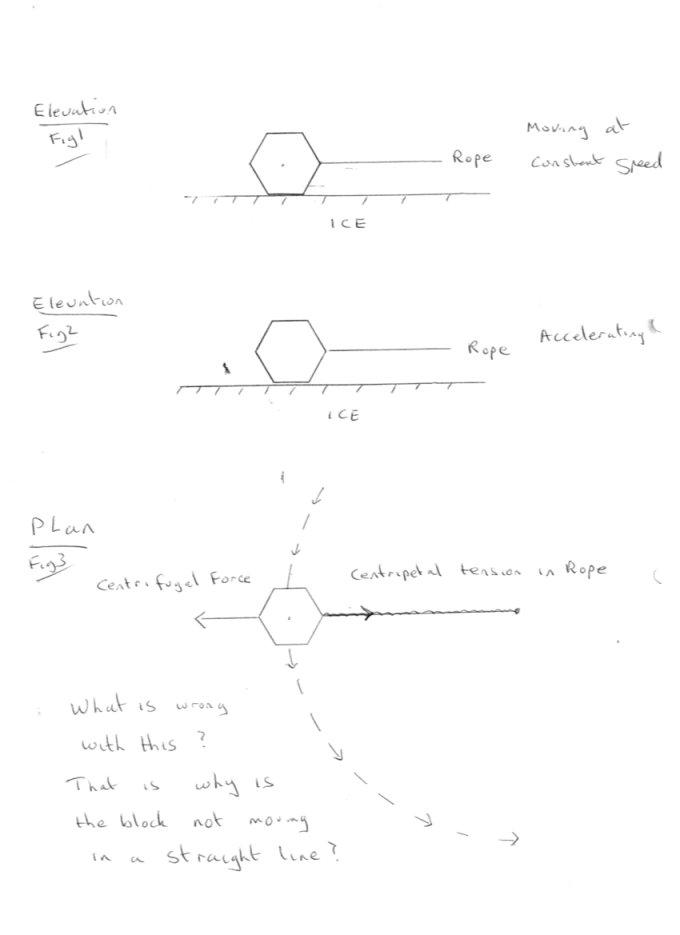 Elevation
Fig1
Moving at
constant speed
Rope
ICE
Elevation
Fig2
Accelerating
Rope
ICE
PLan
Fig3
Centrifugal Force
Centripetal tension in Rope
What is wrong
with this ?
That is why is
the block not moving
in a straight line?